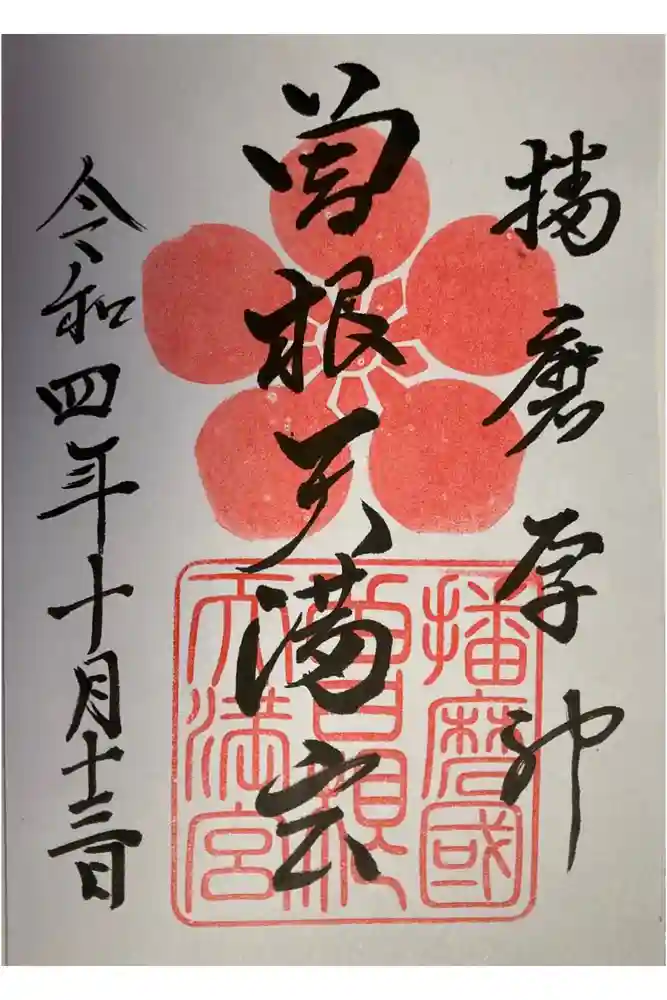 播磨学神
曽根天満宮
令和四年十月十三日
播磨國
曽根
天満宮